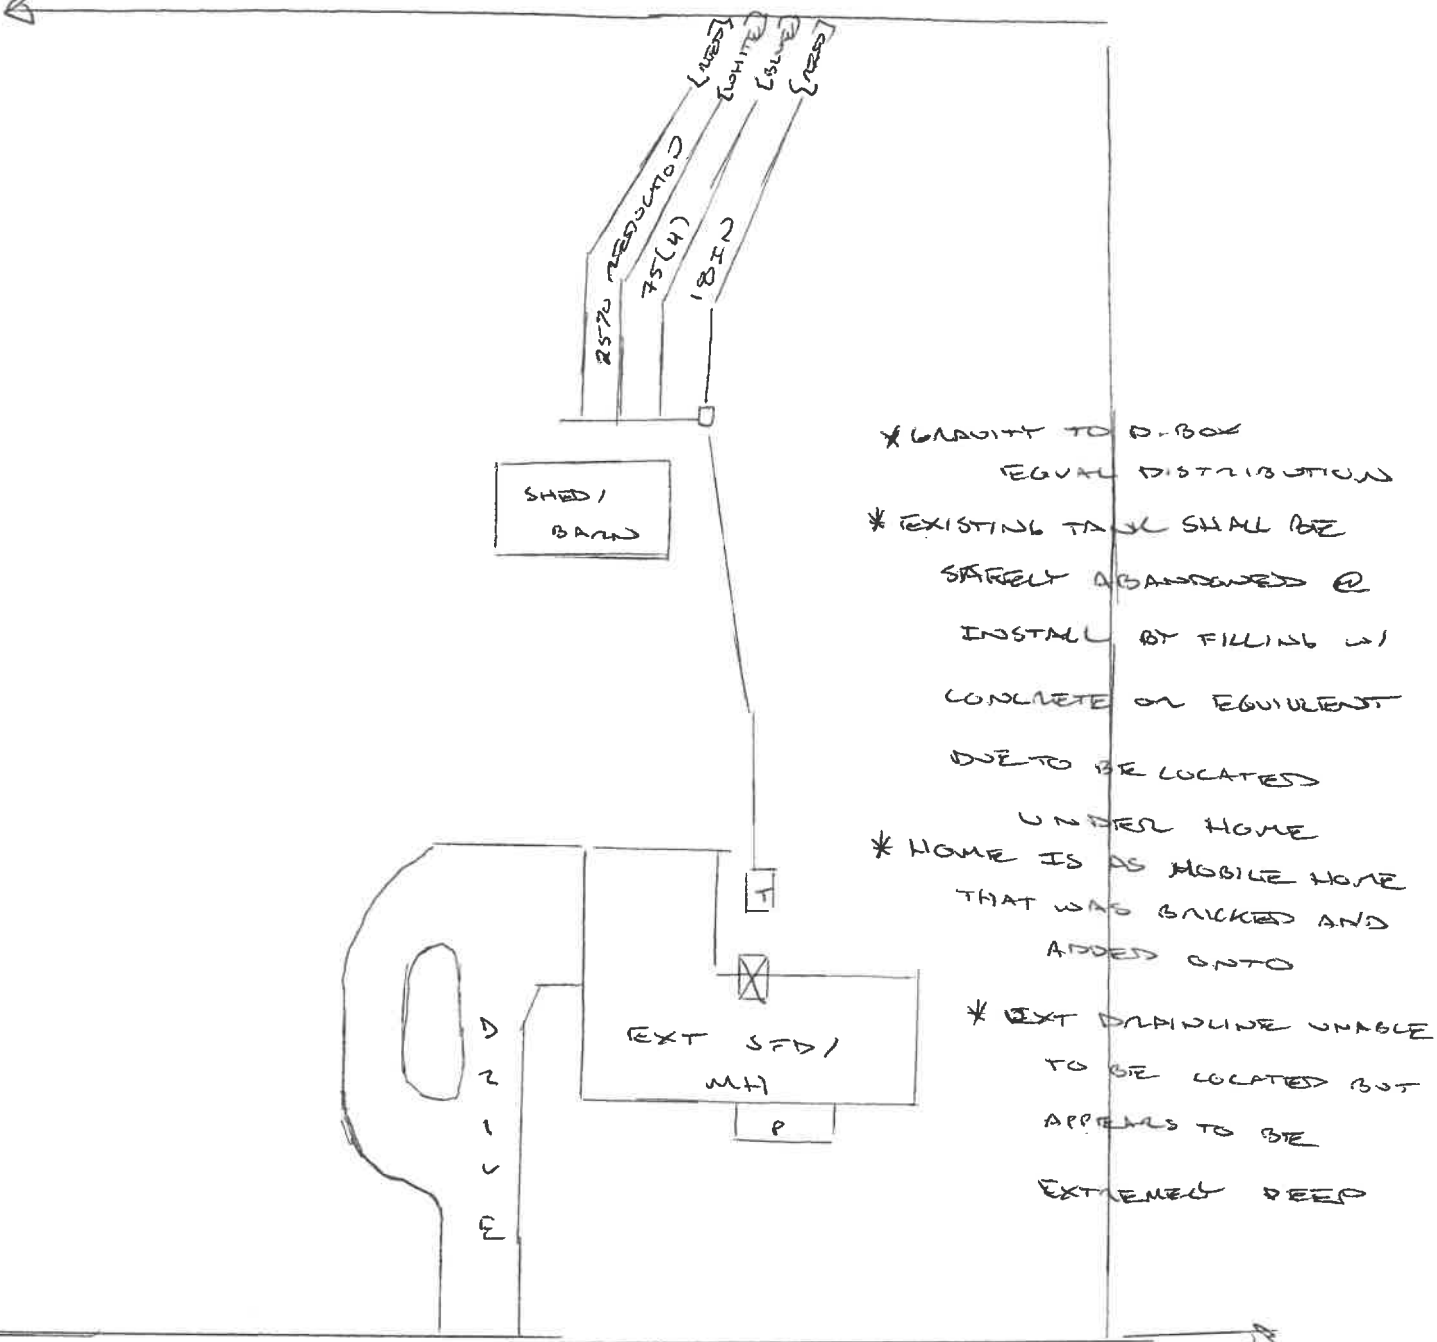 {RED}
{WHITE}
{BLUE}
{RED}
25% REDUCTION
75(4)
18IN
SHED/
BARN
* GRAVITY TO D-BOX
EQUAL DISTRIBUTION
* EXISTING TANK SHALL BE
SAFELY ABANDONED @
INSTALL BY FILLING W/
CONCRETE OR EQUIVLENT
DUE TO BE LOCATED
UNDER HOME
* HOME IS AS MOBILE HOME
THAT WAS BRICKED AND
ADDED ONTO
* EXT DRAINLINE UNABLE
TO BE LOCATED BUT
APPEARS TO BE
EXTREMELY DEEP
T
EXT SFD/
MH
P
DRIVE